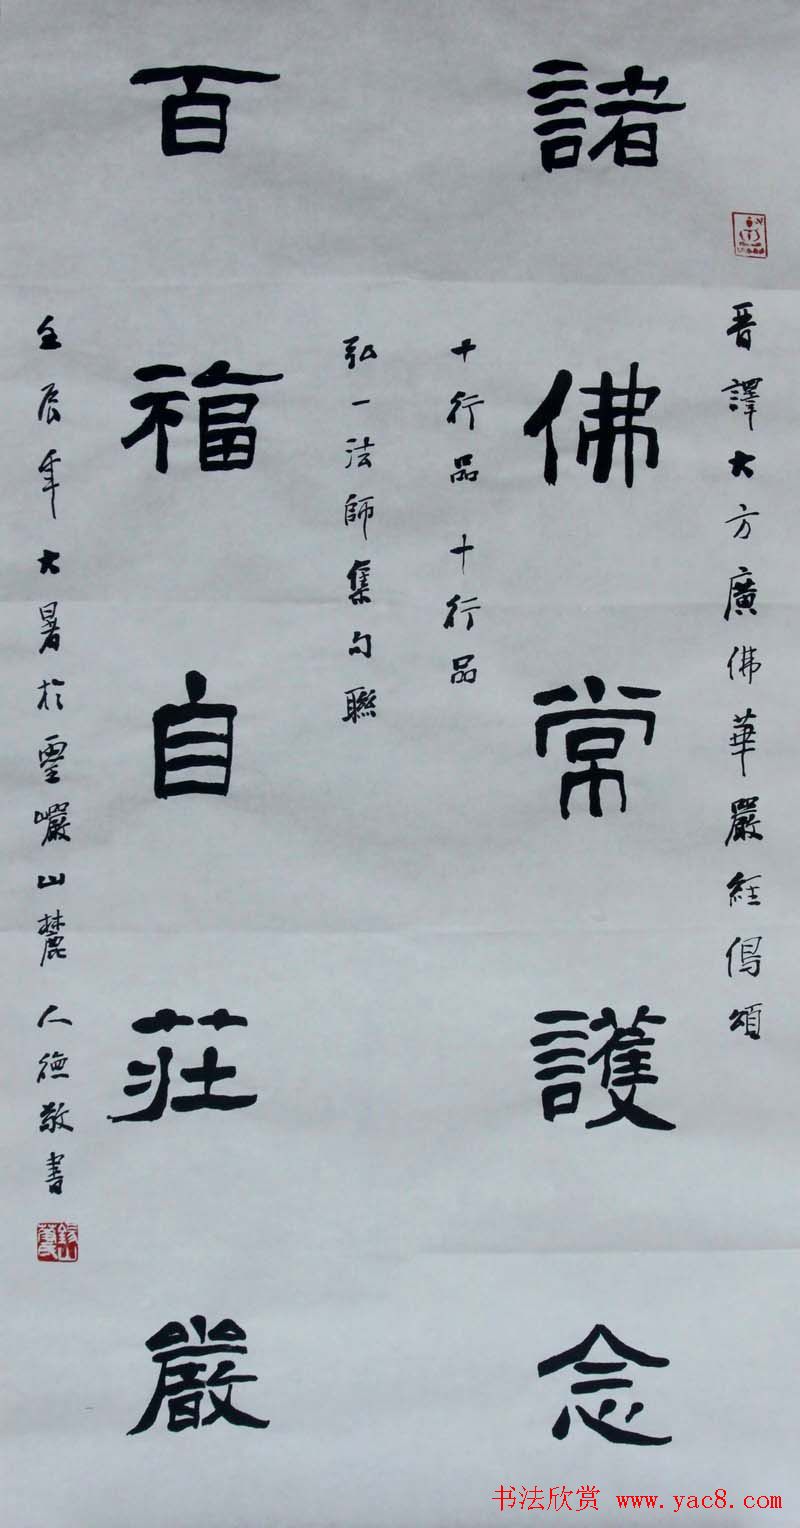 晋譯大方廣佛華嚴経偈頌
諸佛常護念
十行品 十行品
弘一法師集句聯
百福自莊嚴
壬辰年大暑於靈巖山麓 仁德敬書
书法欣赏 www.yac8.com